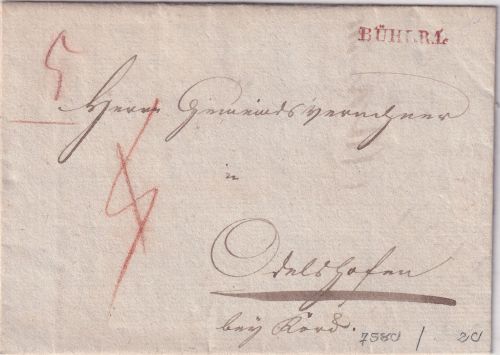 BÜHL.R.1.
5
Herrn Gemeindsverrechner
in
Odelshofen
bey Körd.
7580 / 20